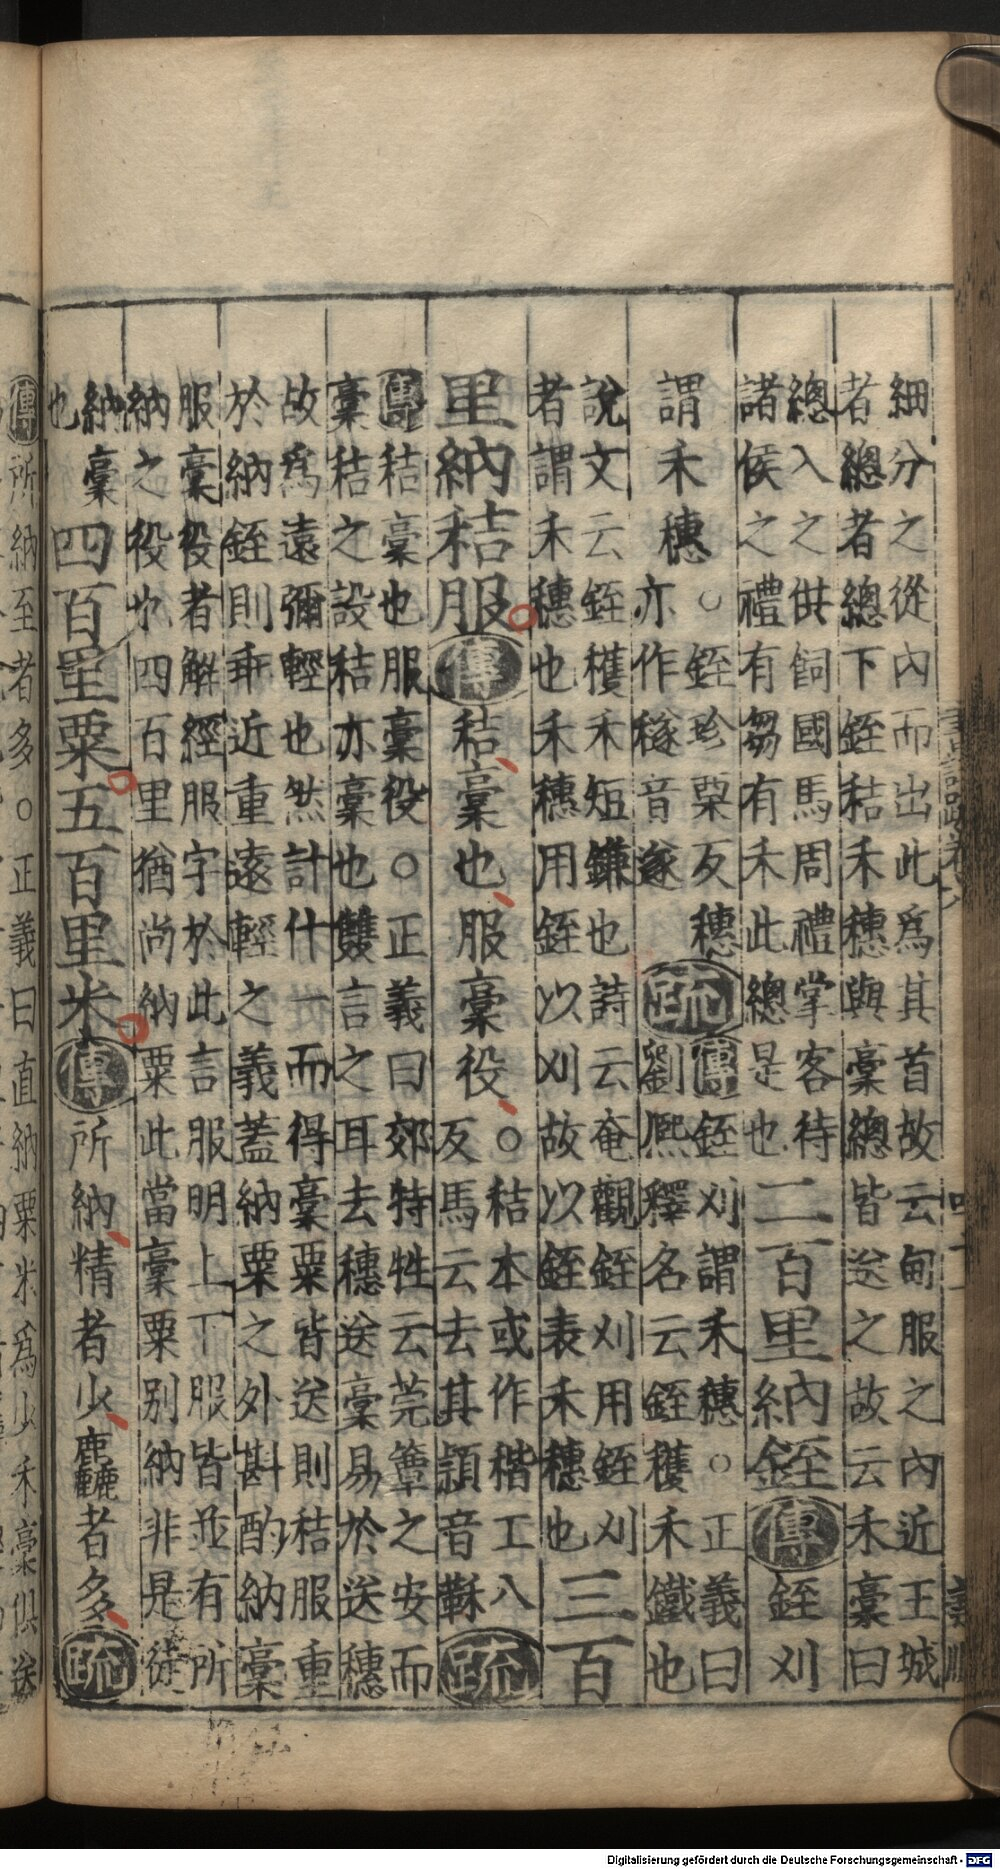 細分之從内而出此爲其首故云甸服之内近王城
者緫者緫下銍秸禾穗與藁緫皆送之故云禾藁曰
緫入之供飼國馬周禮掌客待
諸侯之禮有芻有禾此緫是也
二百里納銍傳銍刈
謂禾穗
○銍珍栗反穗
亦作穟音遂
疏
傳銍刈謂禾穗○正義曰
劉熙釋名云銍穫禾鐵也
說文云銍穫禾短鎌也詩云奄觀銍刈用銍刈
者謂禾穗也禾穗用銍以刈故以銍表禾穗也
三百
里納秸服傳秸藁也服藁役
○秸本或作稭工八
反馬云去其頴音鞂
疏
傳秸藁也服藁役○正義曰郊特牲云莞簟之安而
藁秸之設秸亦藁也雙言之耳去穗送藁易於送穗
故爲遠彌輕也然計什一而得藁粟皆送則秸服重
於納銍則乖近重遠輕之義蓋納粟之外斟酌納藁
服藁役者解經服字於此言服明上下服皆並有所
納之役也四百里猶尚納粟此當藁粟别納非是徒
納藁
也
四百里粟五百里米傳所納精者少麤者多疏
傳所納至者多○正義曰直納粟米爲少禾藁俱送
Digitalisierung gefördert durch die Deutsche Forschungsgemeinschaft - DFG